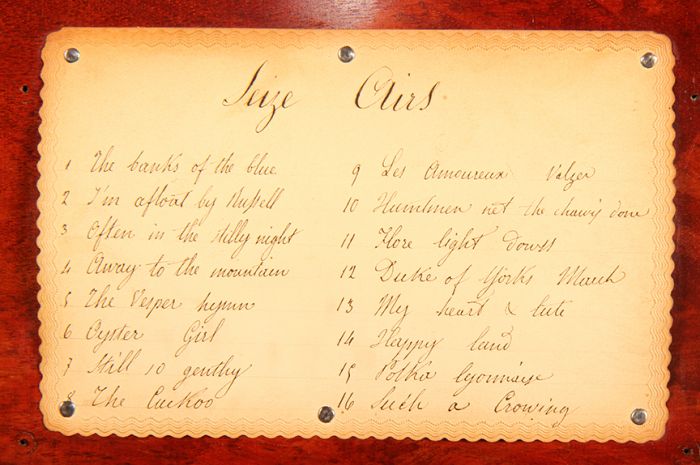 Seize Airs
1 The banks of the blue
2 I'm afloat by Russell
3 Often in the stilly night
4 Away to the mountain
5 The Vesper hymn
6 Oyster Girl
7 Still so gently
8 The Cuckoo
9 Les Amoureux Valzer
10 the done
11 light
12 Duke of Yorks March
13 My heart & lute
14 Happy land
15 Polka lyonnaise
16 Such a Crowing